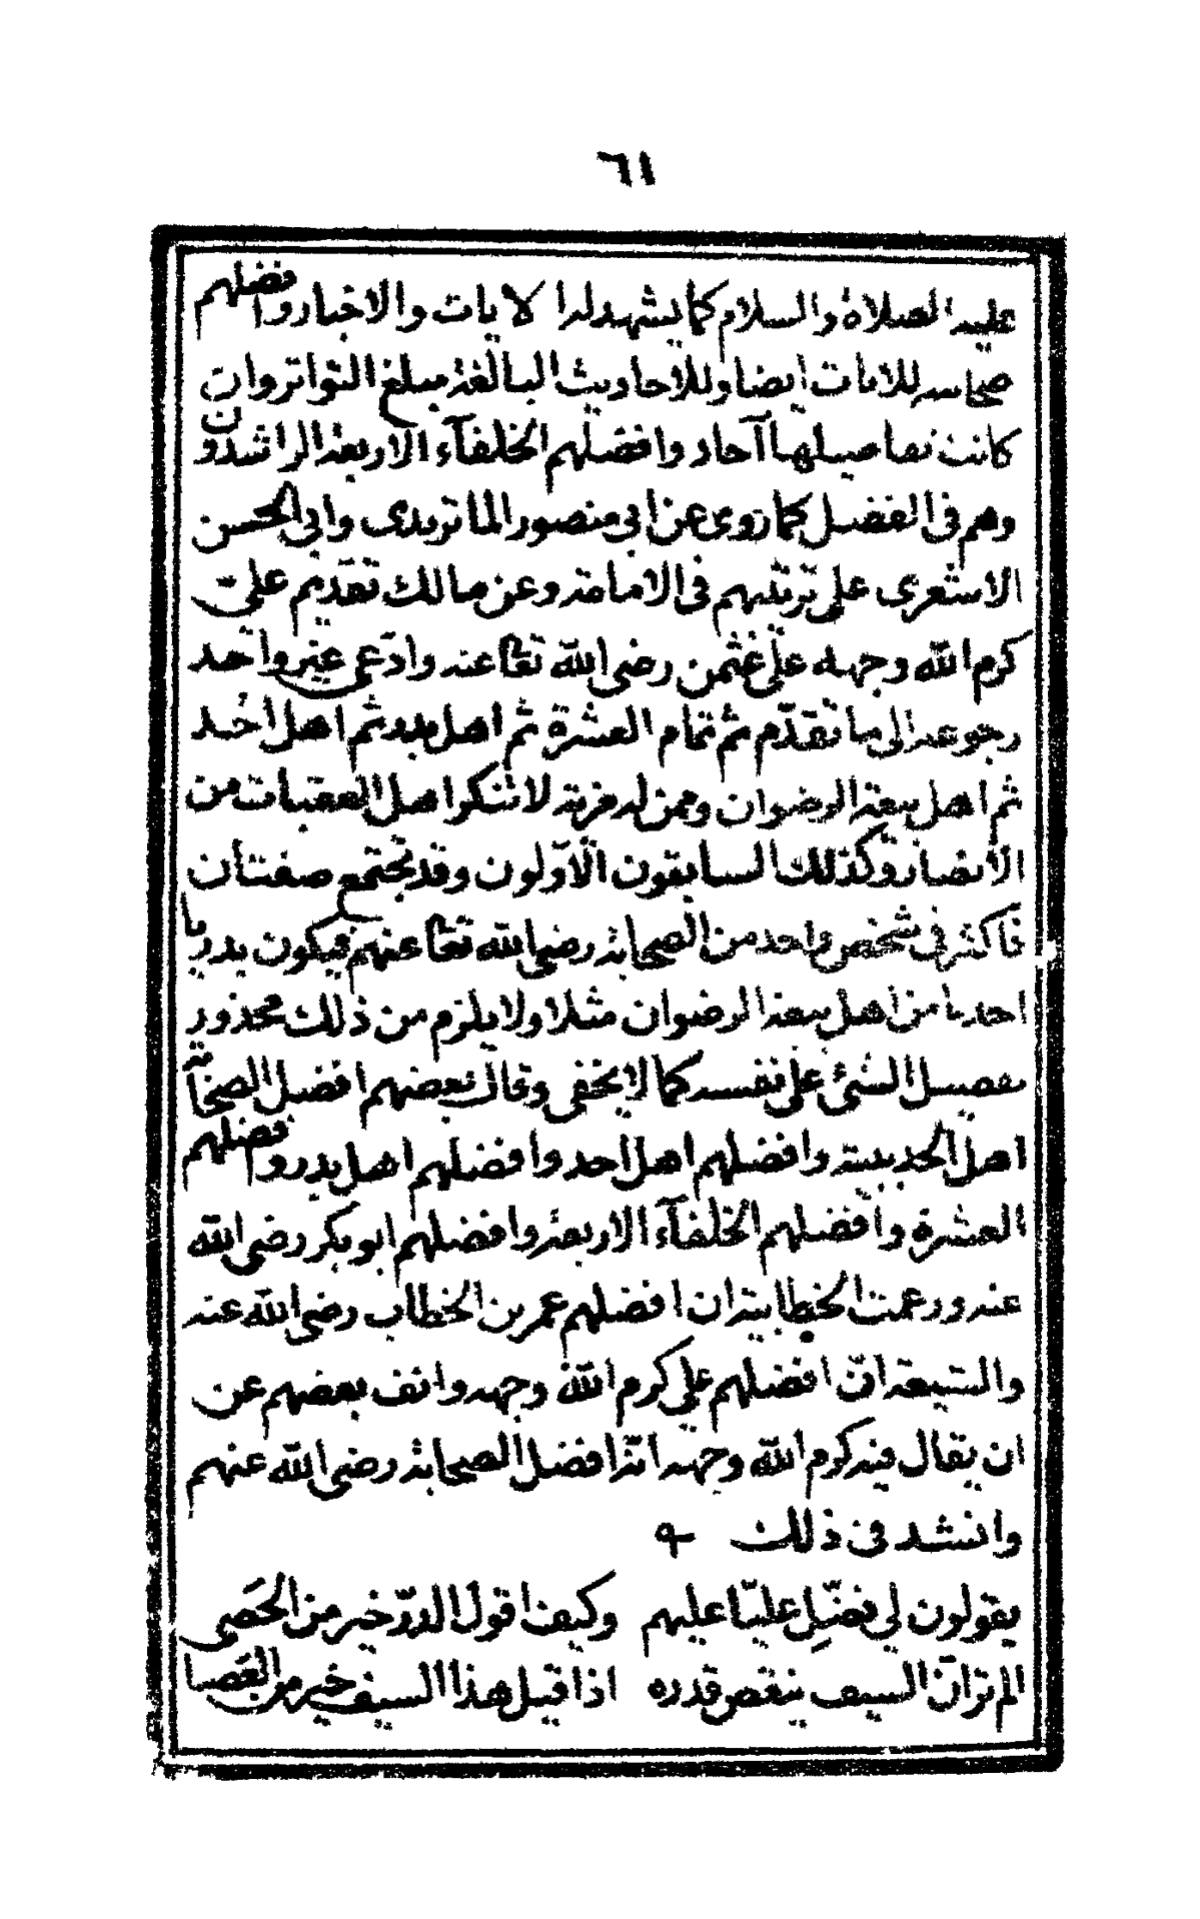 ٦١
عليه الصلاة والسلام كما يشهد له الايات والاخبار وافضلهم
صحابته للايات ايضا وللاحاديث البالغة مبلغ التواتر وان
كانت تفاصيلها آحاد وافضلهم الخلفآء الاربعة الراشدون
وهم فى الفضل كما روى عن ابي منصور الماتريدى وابي الحسن
الاشعرى على ترتيبهم فى الامامة وعن مالك تقديم علىّ
كرم الله وجهه على عثمن رضى الله تعا عنه وادّعى غير واحد
رجوعه الى ما تقدّم ثم تمام العشرة ثم اهل بدر ثم اهل احُد
ثم اهل بيعة الرضوان وممن له مزية لا تنكر اهل العقبات من
الأنصار وكذلك السابقون الاوّلون وقد تجتمع صفتان
فاكثر فى شخص واحد من الصحابة رضى الله تعا عنهم فيكون بدريا
احديا من اهل بيعة الرضوان مثلا ولا يلزم من ذلك محذور
تفضيل الشئ على نفسه كما لا يخفى وقال بعضهم افضل الصحابة
اهل الحديبية وافضلهم اهل احد وافضلهم اهل بدر وافضلهم
العشرة وافضلهم الخلفآء الاربعة وافضلهم ابو بكر رضى الله
عنه وزعمت الخطابية ان افضلهم عمر بن الخطاب رضى الله عنه
والشيعة انّ افضلهم علي كرم الله وجهه وانف بعضهم عن
ان يقال فيه كرم الله وجهه انّه افضل الصحابة رضى الله عنهم
وانشد فى ذلك
يقولون لي فضّل عليّا عليهم وكيف اقول الدرّ خير من الحَصى
الم تر انّ السيف ينقص قدره اذا قيل هذا السيف خير من العَصا